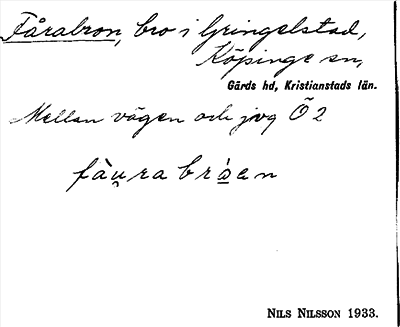 Fårabron, bro i Gringelstad,
Köpinge sn,
Gärds hd, Kristianstads län.
Mellan vägen och jvg Ö 2
fàu̯rabrǻen
NILS NILSSON 1933.